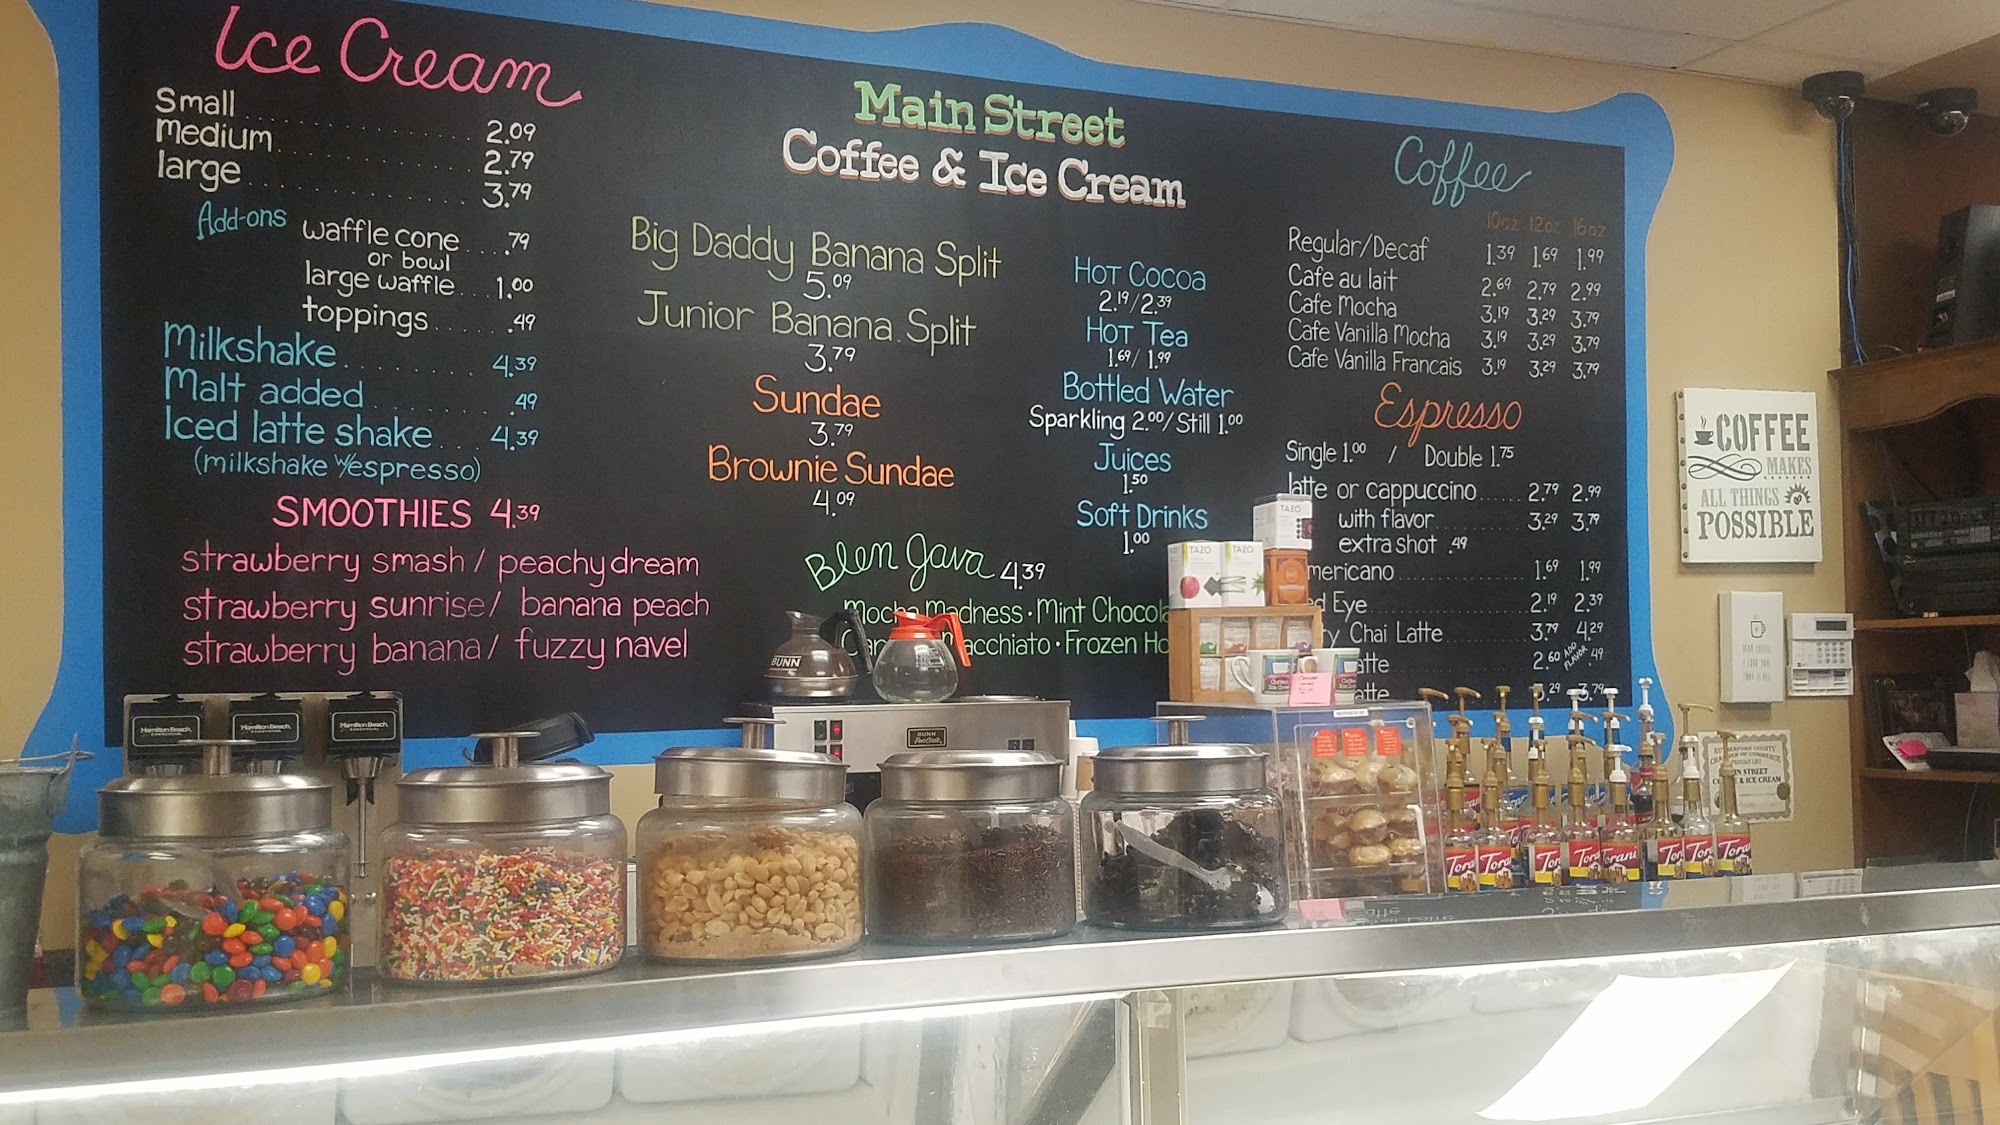 Ice Cream
Small 2.09
Medium 2.79
large 3.79
Add-ons
waffle cone .79
or bowl
large waffle 1.00
toppings .49
Milkshake 4.39
Malt added .49
Iced latte shake 4.39
(milkshake w/espresso)
SMOOTHIES 4.39
strawberry smash / peachy dream
strawberry sunrise / banana peach
strawberry banana / fuzzy navel
Main Street
Coffee & Ice Cream
Big Daddy Banana Split
5.09
Junior Banana Split
3.79
Sundae
3.79
Brownie Sundae
4.09
Blen Java 4.39
Mocha Madness · Mint Chocola
acchiato · Frozen Ho
Hot Cocoa
2.19/2.39
Hot Tea
1.69/1.99
Bottled Water
Sparkling 2.00/Still 1.00
Juices
1.50
Soft Drinks
1.00
Coffee
10oz 12oz 16oz
Regular/Decaf 1.39 1.69 1.99
Cafe au lait 2.69 2.79 2.99
Cafe Mocha 3.19 3.29 3.79
Cafe Vanilla Mocha 3.19 3.29 3.79
Cafe Vanilla Francais 3.19 3.29 3.79
Espresso
Single 1.00 / Double 1.75
latte or cappuccino 2.79 2.99
with flavor 3.29 3.79
extra shot .49
mericano 1.69 1.99
ed Eye 2.19 2.39
ry Chai Latte 3.79 4.29
atte 2.60 ADD FLAVOR .49
atte 3.29 3.79
COFFEE
MAKES
ALL THINGS
POSSIBLE
TAZO
TAZO
TAZO
BUNN
BUNN
Hamilton Beach
Hamilton Beach
Hamilton Beach
IN STREET
& ICE CREAM
Torani
Torani
Torani
Torani
Torani
Torani
Torani
Torani